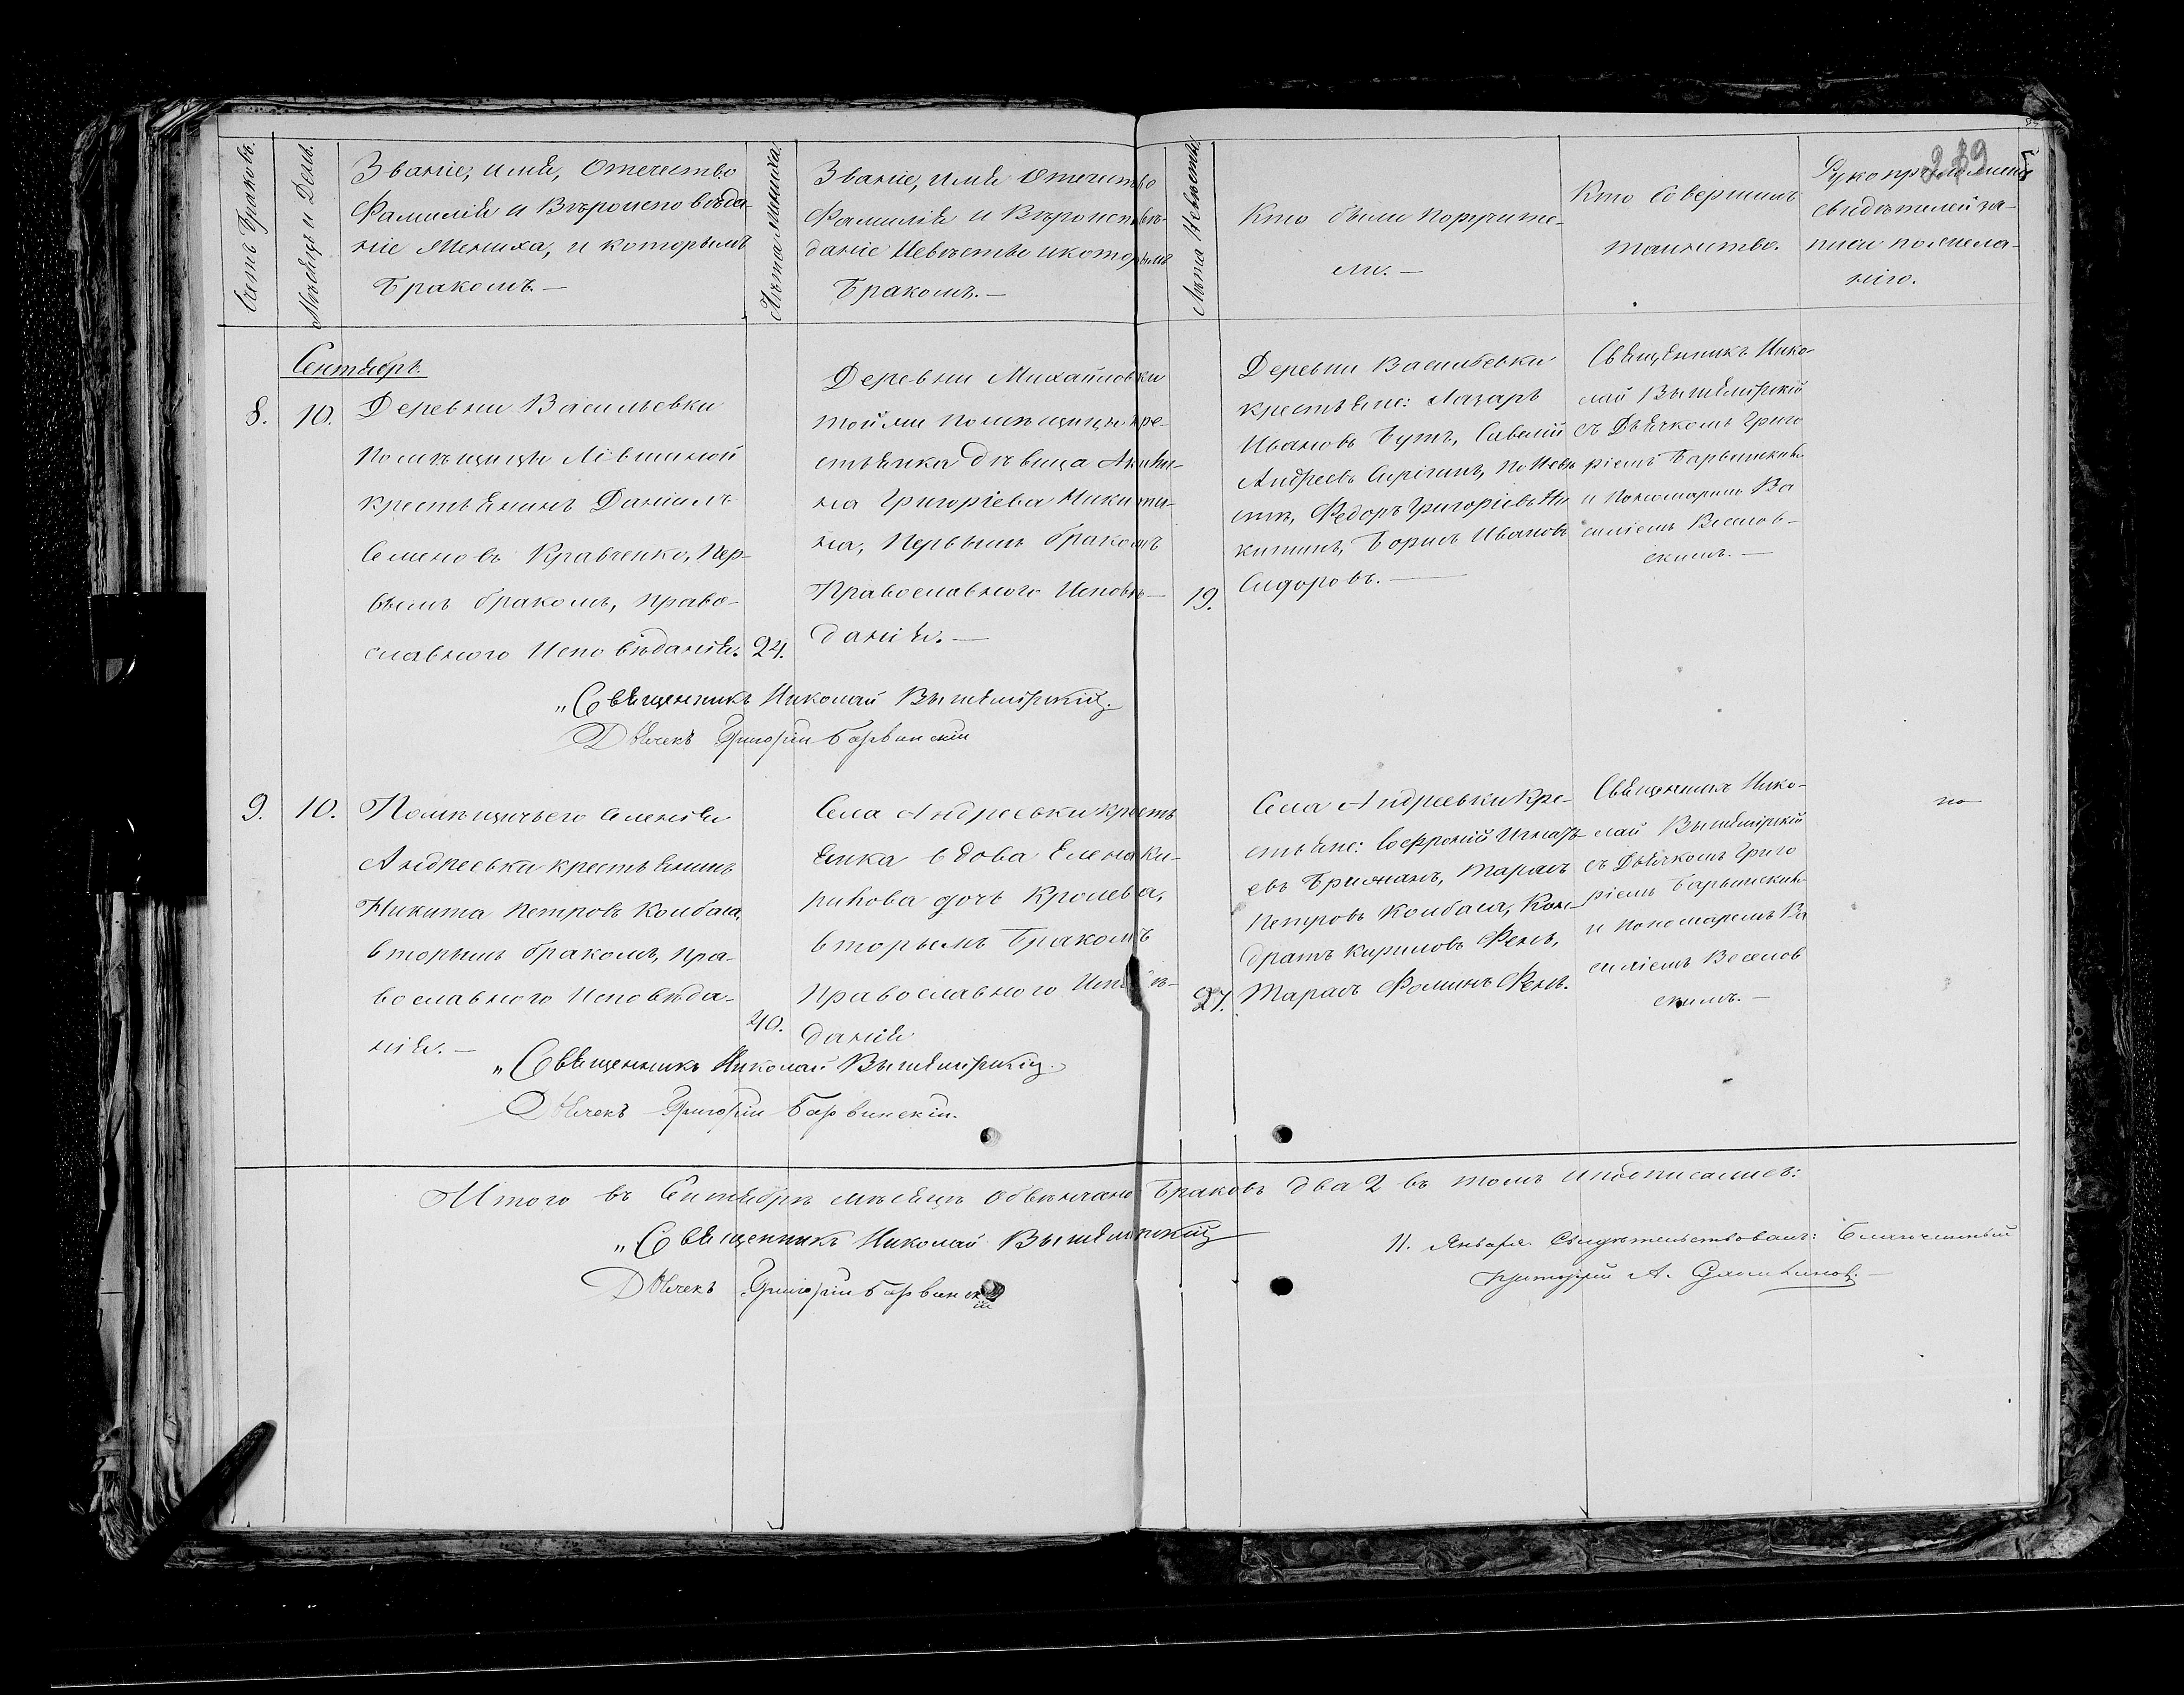 Счетъ Браковъ.
Мѣсяцъ и День.
Званіе, имя, Отечество
Фамилія и Вѣроисповѣда-
ніе Жениха, и которымъ
Бракомъ. —
Лѣта Жениха.
Званіе, имя Отечество
Фамилія и Вѣроисповѣ-
даніе Невѣсты и которымъ
Бракомъ. —
Лѣта Невѣсты.
Кто были поручите-
ли. —
Кто Совершилъ
таинство.
Рукоприложеніе
свидѣтелей за-
писи по жела-
нію.
Сентябрь.
8.
10.
Деревни Васильевки
Помѣщицы
крестьянинъ Даніилъ
Семеновъ Кравченко, Пер-
вымъ бракомъ, право-
славнаго Исповѣданія.
24.
Деревни Михайловки
той же помѣщицы кре-
стьянка дѣвица
на Григоріева Никити-
на, Первымъ бракомъ
Православнаго Исповѣ-
данія. —
19.
Деревни Васильевки
крестьяне: Лазарь
Ивановъ Бутъ, Савелій
Андреевъ по Невѣ
стѣ, Федоръ Григорьевъ Ни
китинъ, Борисъ Ивановъ
Сидоровъ. —
Священникъ Нико-
лай Вышемірскій
съ Дьячкомъ Григо
ріемъ Барвинскимъ
и Пономаремъ Ва
силіемъ
скимъ. —
„Священникъ Николай Вышемірскій.
Дьячекъ Григорій Барвинскій
9.
10.
Помѣщичьего Селенія
Андреевки крестьянинъ
Никита Петровъ Колбаса,
вторымъ бракомъ, пра-
вославного Исповѣда-
нія. —
40.
Села Андреевки кресть
янка вдова Елена Ки-
рилова дочь Кролева,
вторымъ Бракомъ
Православного Исповѣ-
данія
27.
Села Андреевки кре-
стьяне: Софроній Игнать
евъ Тарасъ
Петровъ Колбаса, Кон-
дратъ Кириловъ Фень,
Тарасъ Фоминъ Фень.
Священникъ Нико-
лай Вышемірскій
съ Дьячкомъ Григо
ріемъ Барвинскимъ
и Пономаремъ Ва
силіемъ
скимъ. —
„Священникъ Николай Вышемірскій.
Дьячекъ Григорій Барвинскій.
Итого въ Сентябрѣ мѣсяцѣ обвѣнчано Браковъ два 2 въ томъ и подписались:
„Священникъ Николай Вышемірскій
Дьячекъ Григорій Барвинскій
11. Января Свидѣтельствовалъ: Благочинный
А.